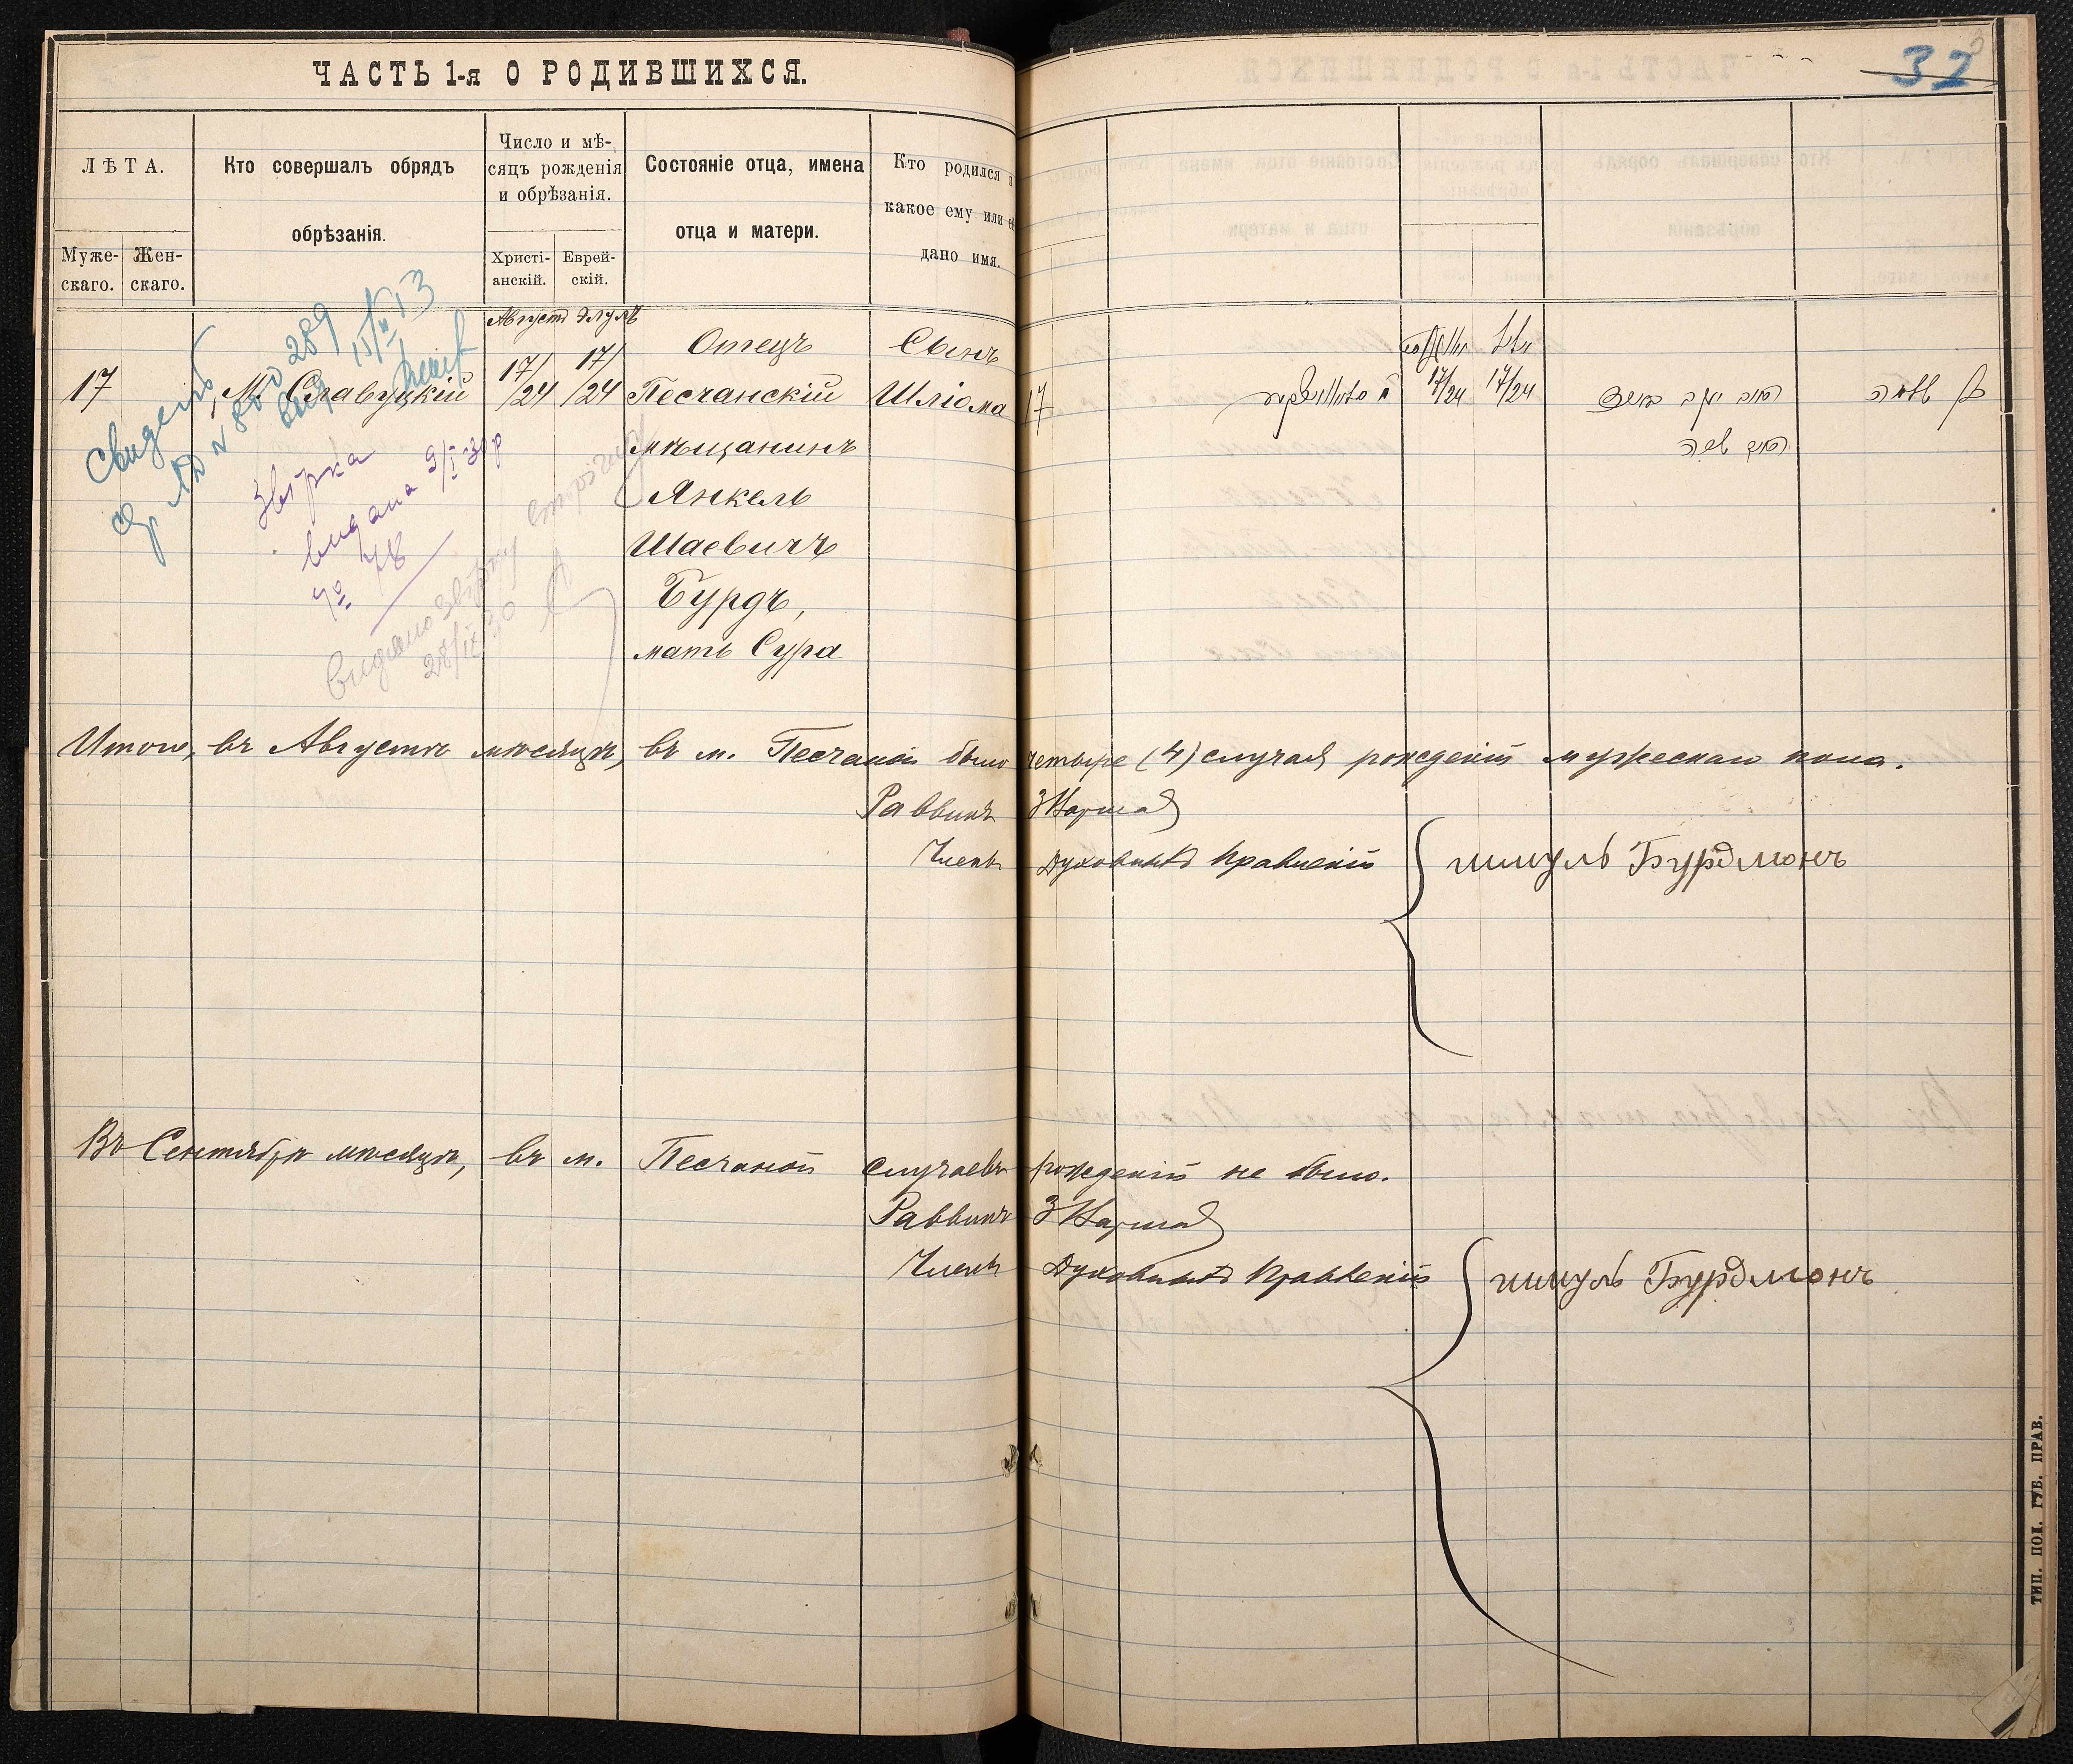 ЧАСТЬ 1-я О РОДИВШИХСЯ.
32
ЛѢТА.
Муже-
скаго.
Жен-
скаго.
Кто совершалъ обрядъ
обрѣзанія.
Число и мѣ-
сяцъ рожденія
и обрѣзанія.
Христі-
анскій.
Еврей-
скій.
Состояніе отца, имена
отца и матери.
Кто родился и
какое ему или ей
дано имя.
Августъ Элулъ
17 М. Славуцкій 17/24 17/24
Отецъ
Песчанскій
мѣщанинъ
Янкель
Шаевичъ
Бурдъ,
мать Сура
Сынъ
Шліома
17
17/24 17/24
Звірка
видана 9/I-30 р
№ 48
видано звірку
28/IX 30
Итого, въ Августѣ мѣсяцѣ, въ м. Песчаной было четыре (4) случая рожденій мужескаго пола.
Раввинъ
Членъ Духовнаго Правленія } шмуль Бурдмонъ
Въ Сентябрѣ мѣсяцѣ, въ м. Песчаной случаевъ рожденій не было.
Раввинъ
Членъ Духовнаго Правленія } шмуль Бурдмонъ
ТИП. ПОД. ГУБ. ПРАВ.